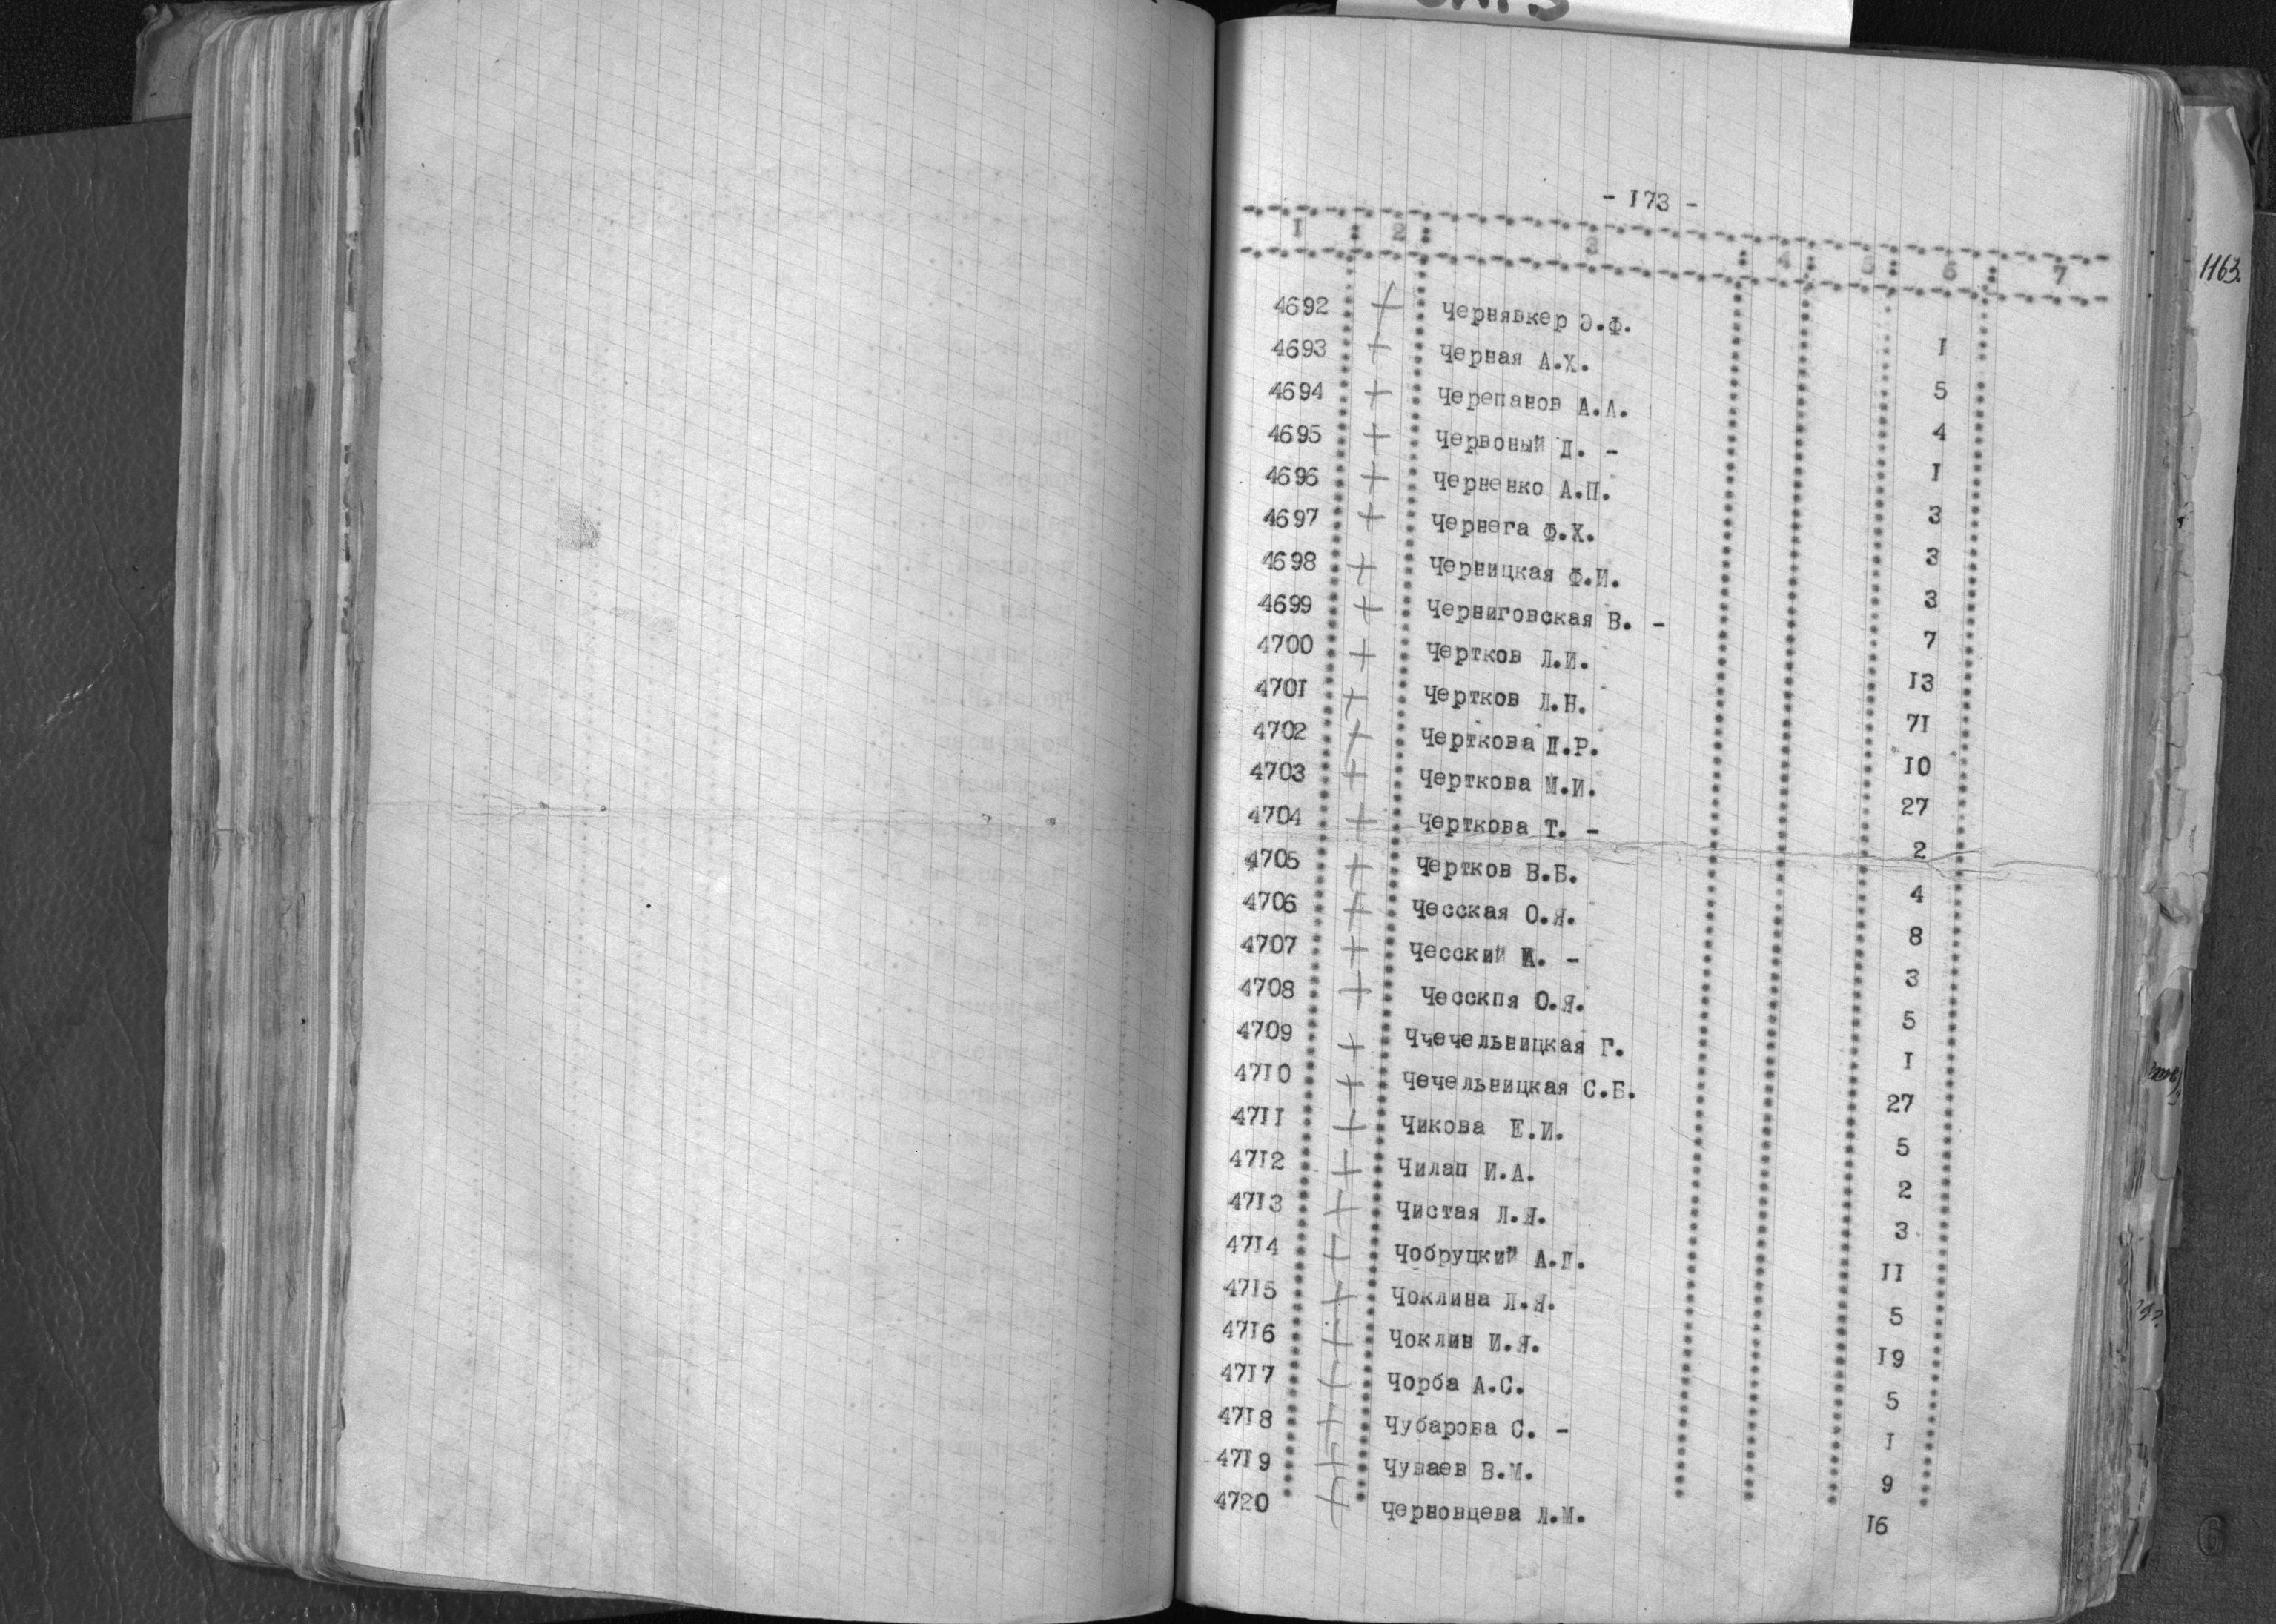 - I73 -
I 2 3 4 5 6 7
1163.
4692 + Чернявкер Э.Ф. I
4693 + Черная А.Х. 5
4694 + Черепанов А.А. 4
4695 + Червоный Д. - I
4696 + Черненко А.П. 3
4697 + Чернега Ф.Х. 3
4698 + Черницкая Ф.И. 3
4699 + Черниговская В. - 7
4700 + Чертков Л.И. I3
470I + Чертков Л.Н. 7I
4702 + Черткова Д.Р. I0
4703 + Черткова М.И. 27
4704 + Черткова Т. - 2
4705 + Чертков В.Б. 4
4706 + Чесская О.Я. 8
4707 + Чесский И. - 3
4708 + Чесскпя О.Я. 5
4709 + Ччечельницкая Г. I
47I0 + Чечельницкая С.Б. 27
47II + Чикова Е.И. 5
47I2 + Чилап И.А. 2
47I3 + Чистая Л.Я. 3
47I4 + Чобруцкий А.Л. II
47I5 + Чоклина Л.Я. 5
47I6 + Чоклин И.Я. I9
47I7 + Чорба А.С. 5
47I8 + Чубарова С. - I
47I9 + Чунаев В.М. 9
4720 + Черновцева Л.М. I6